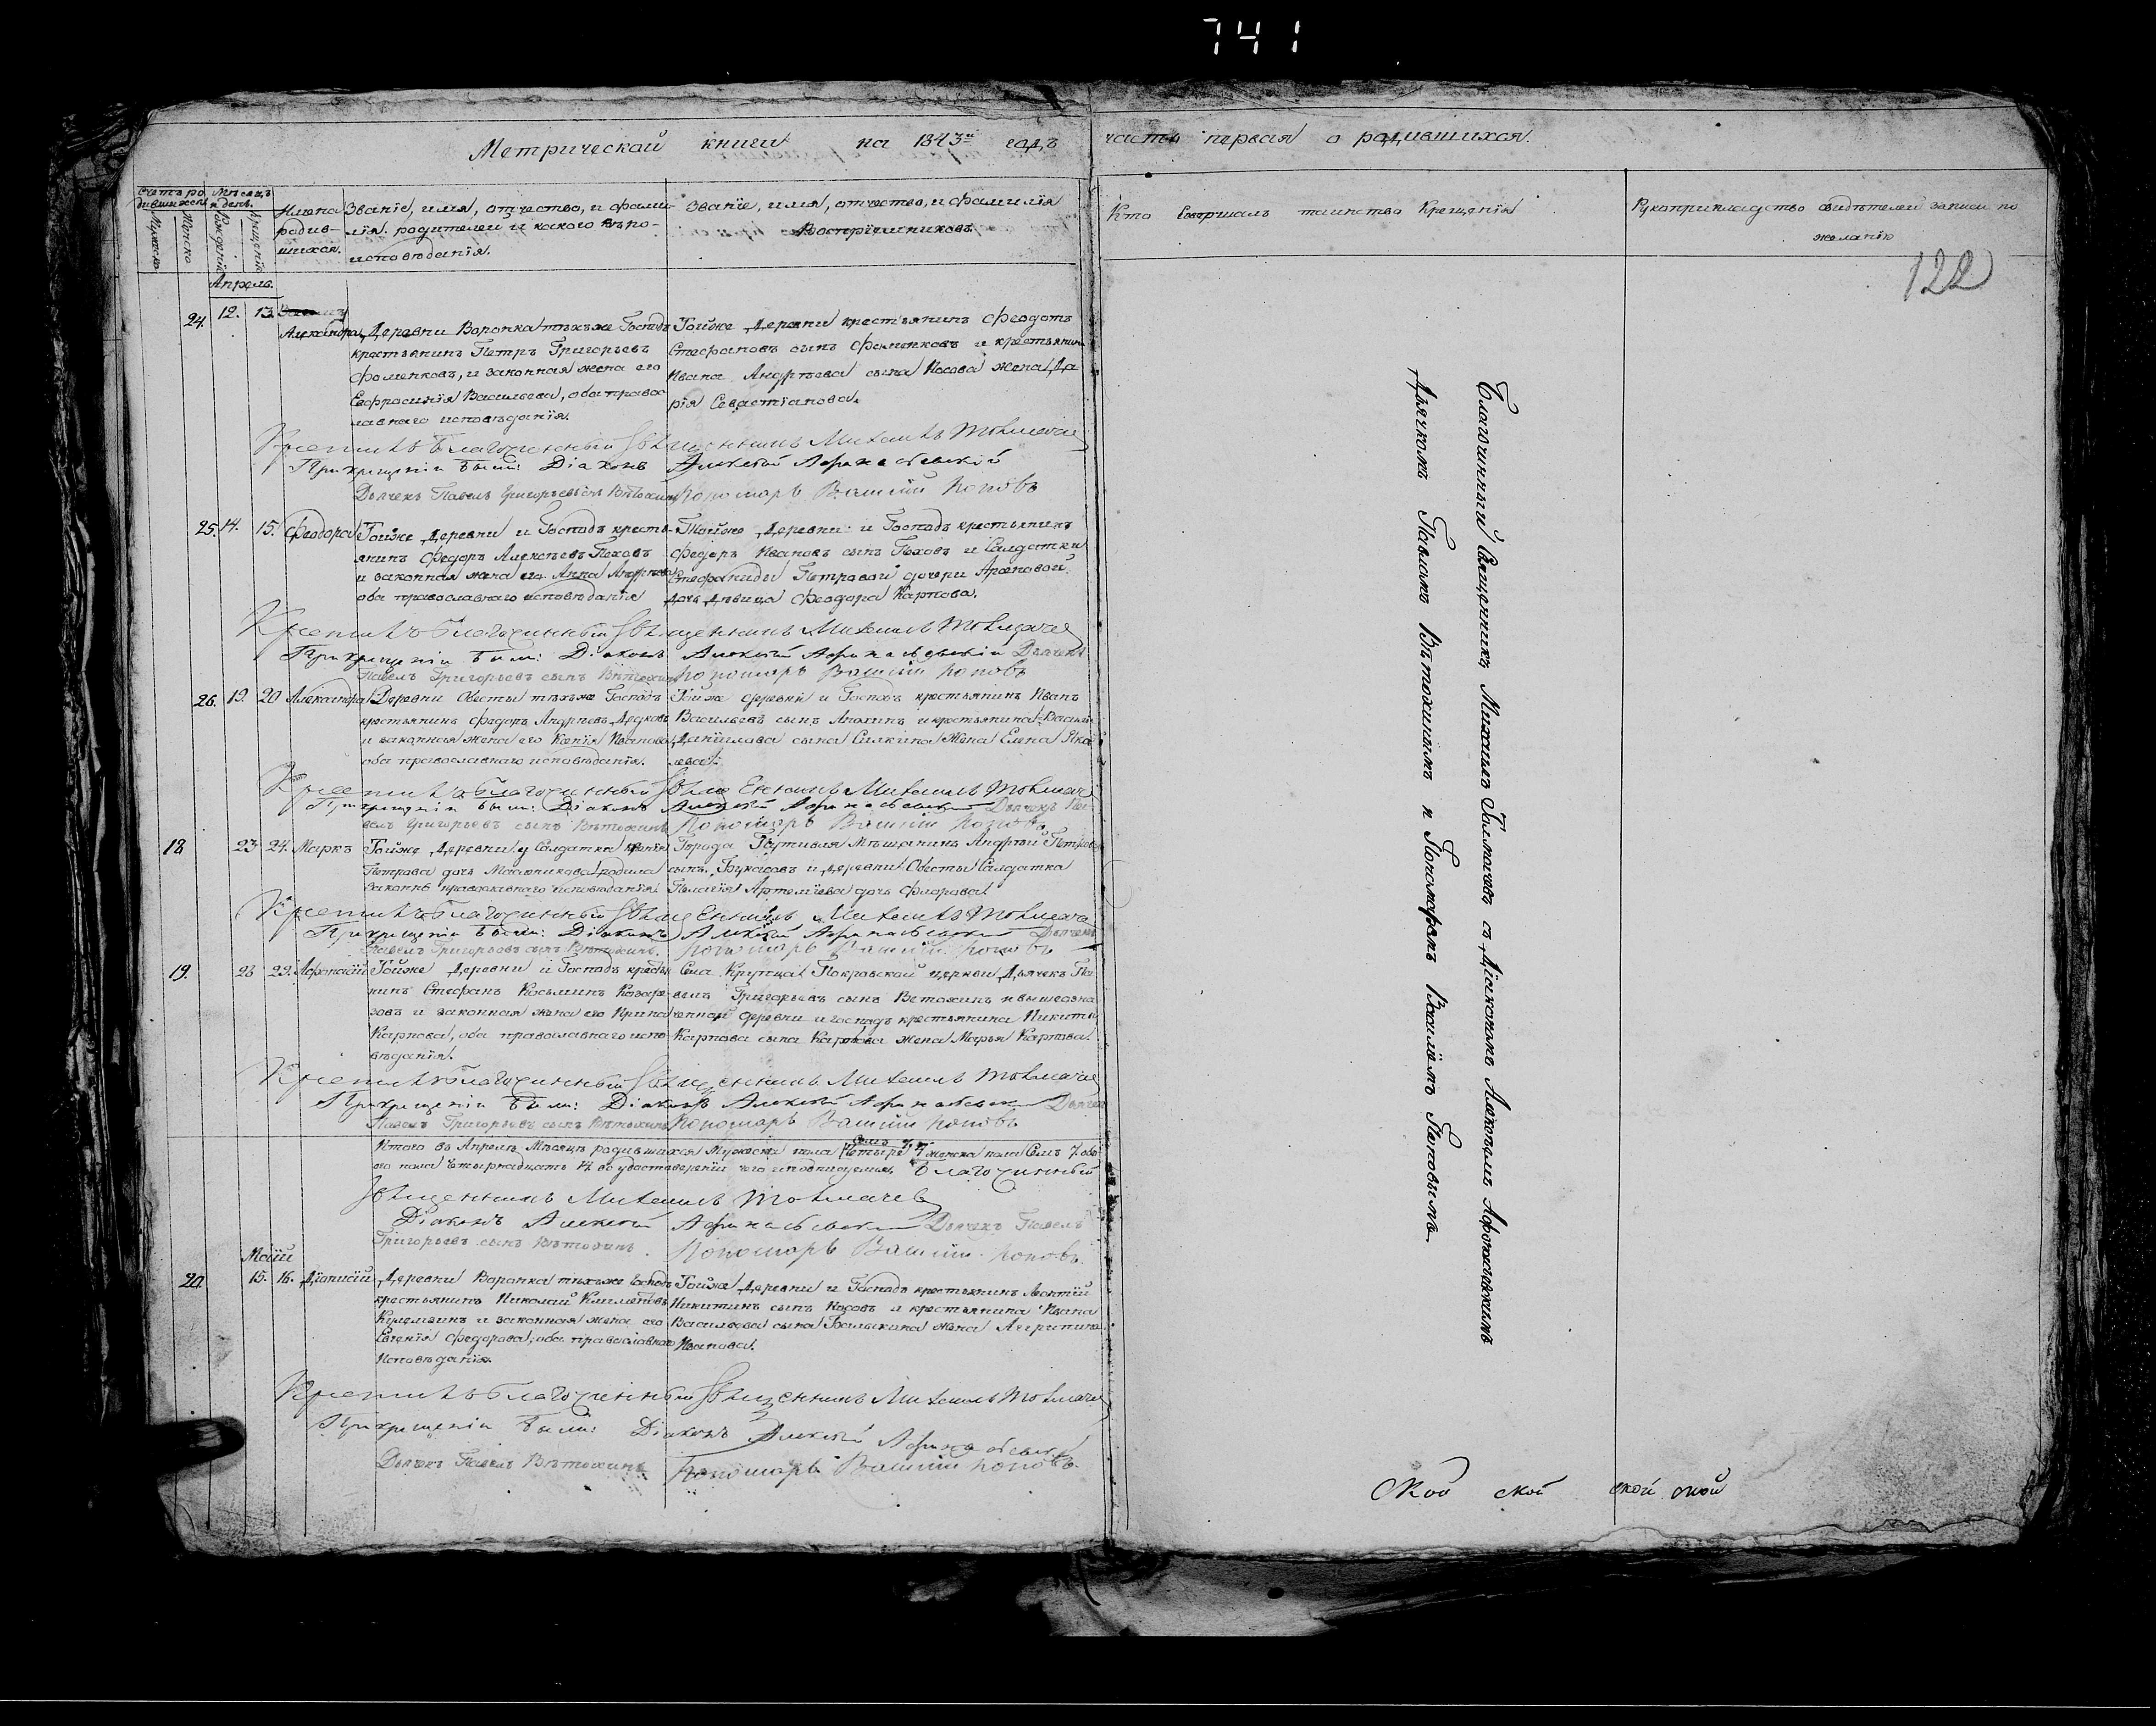 741
Метрической книги на 1843й годъ часть первая о родившихся.
Счетъ родившихся
Мужеска
Женска
Мѣсяцъ и день.
Рожденія
Крещенія
Имена родившихся.
Званіе, имя, отчество, и фамилія родителей и какого вѣроисповѣданія.
Званіе, имя, отчество, и фамилія Воспріемниковъ
Кто Совершалъ таинство Крещенія
Рукоприкладство свидѣтелей записи по желанію
122
Апрель.
24. 12. 13. Александра
Деревни Воропка тѣхъже Господъ
крестьянинъ Петръ Григорьевъ
Фоменковъ, и законная жена его
Евфросинія Васильева, оба право
лавнаго исповѣданія.
Тойже Деревни крестьянинъ Феодотъ
Стефановъ сынъ Фоменковъ и крестьянина
Ивана Андрѣева сына Носова жена Да
рія Севастіанова.
Крестилъ Благочинный Священникъ Михаилъ Толмачев
При крещеніи были: Діаконъ Алексѣй Афанасьевскій
Дьячекъ Павелъ Григорьевъ сынъ Вѣтохинъ Пономарь Василій Поповъ
25. 14. 15. Феодора
Тойже Деревни и Господъ кресть
янинъ Федоръ Алексѣевъ Пеховъ
и законная жена его Анна Андрѣева
оба православнаго исповѣданія
Тойже Деревни и Господъ крестьянинъ
Федоръ Ивановъ сынъ Пеховъ и Салдатки
Стефаниды Петровой дочери
дочь дѣвица Феодора Карпова.
Крестилъ Благочинный Священникъ Михаилъ Толмачев
При крещеніи были: Діаконъ Алексѣй Афанасьевскій Дьячекъ
Павелъ Григорьевъ сынъ Вѣтохинъ Пономарь Василій Поповъ
26. 19. 20 Александра
Деревни Овесты тѣхъже Господъ
крестьянинъ Федоръ Андрѣевъ Дедковъ
и законная жена его Ксенія Иванова
оба православнаго исповѣданія.
Тойже Деревни и Господъ крестьянинъ Иванъ
Васильевъ сынъ Анохинъ и крестьянина Василія
Даніилова сына Силкина жена Елена Яко
лева.
Крестилъ Благочинный Священникъ Михаилъ Толмачев
При крещеніи были: Діаконъ Алексѣй Афанасьевскій Дьячекъ Па
велъ Григорьевъ сынъ Вѣтохинъ Пономарь Василій Поповъ
18 23 24. Маркъ
Тойже Деревни у Салдатки
Петрова дочь родила
законнѣ православнаго исповѣданія.
Города Путивля Мѣщанинъ Андрѣй Петровъ
сынъ и деревни Овесты Салдатка
Пелагія Артеміева дочь Фларова.
Крестилъ Благочинный Священникъ Михаилъ Толмачев
При крещеніи были: Діаконъ Алексѣй Афанасьевскій Дьячекъ
Павелъ Григорьевъ сынъ Вѣтохинъ. Пономарь Василій Поповъ
19. 28 29. Афанасій
Тойже Деревни и Господъ крестья
нинъ Стефанъ Косьминъ Козыре
ковъ и законная жена его Ирина
Карпова, оба православнаго испо
вѣданія.
Села Крупца Покровской церкви Дьячекъ Па
велъ Григорьевъ сынъ Ветохинъ и вышеозна
ченной деревни и господъ крестьянина Никиты
Карпова сына Карпова жена Марья Карпова
Крестилъ Благочинный Священникъ Михаилъ Толмачев
При крещеніи были: Діаконъ Алексѣй Афанасьевскій Дьячекъ
Павелъ Григорьевъ сынъ Вѣтохинъ Пономарь Василій Поповъ
Итого въ Апрелѣ Мѣсяцѣ родившихся Мужеска пола Четыре Семь 7. женска пола Семь 7. обо
его пола Четырнадцать 14 во удостовереніи чего и подписуемся. Благочинный
Священникъ Михаилъ Толмачев
Діаконъ Алексѣй Афанасьевскій Дьячекъ Павелъ
Григорьевъ сынъ Вѣтохинъ. Пономарь Василій Поповъ.
Маій
20. 15. 16. Діонисій
Деревни Воропка тѣхъже Господъ
крестьянинъ Николай Климентовъ
и законная жена его
Евгенія Федорова, оба православнаго
Исповѣданія.
Тойже Деревни и Господъ крестьянинъ Леонтій
Никитинъ сынъ Носовъ и крестьянина Ивана
Васильева сына жена Агрипина
Иванова.
Крестилъ Благочинный Священникъ Михаилъ Толмачев
При крещеніи были: Діаконъ Алексѣй Афанасьевскій
Дьячекъ Павелъ Вѣтохинъ Пономарь Василій Поповъ.
Благочинный Священникъ Михаилъ Толмачевъ съ Діакономъ Алексѣемъ Афанасьевскимъ
Дьячкомъ Павломъ Вѣтохинымъ и Пономаремъ Василіемъ Поповымъ
ской ской ской